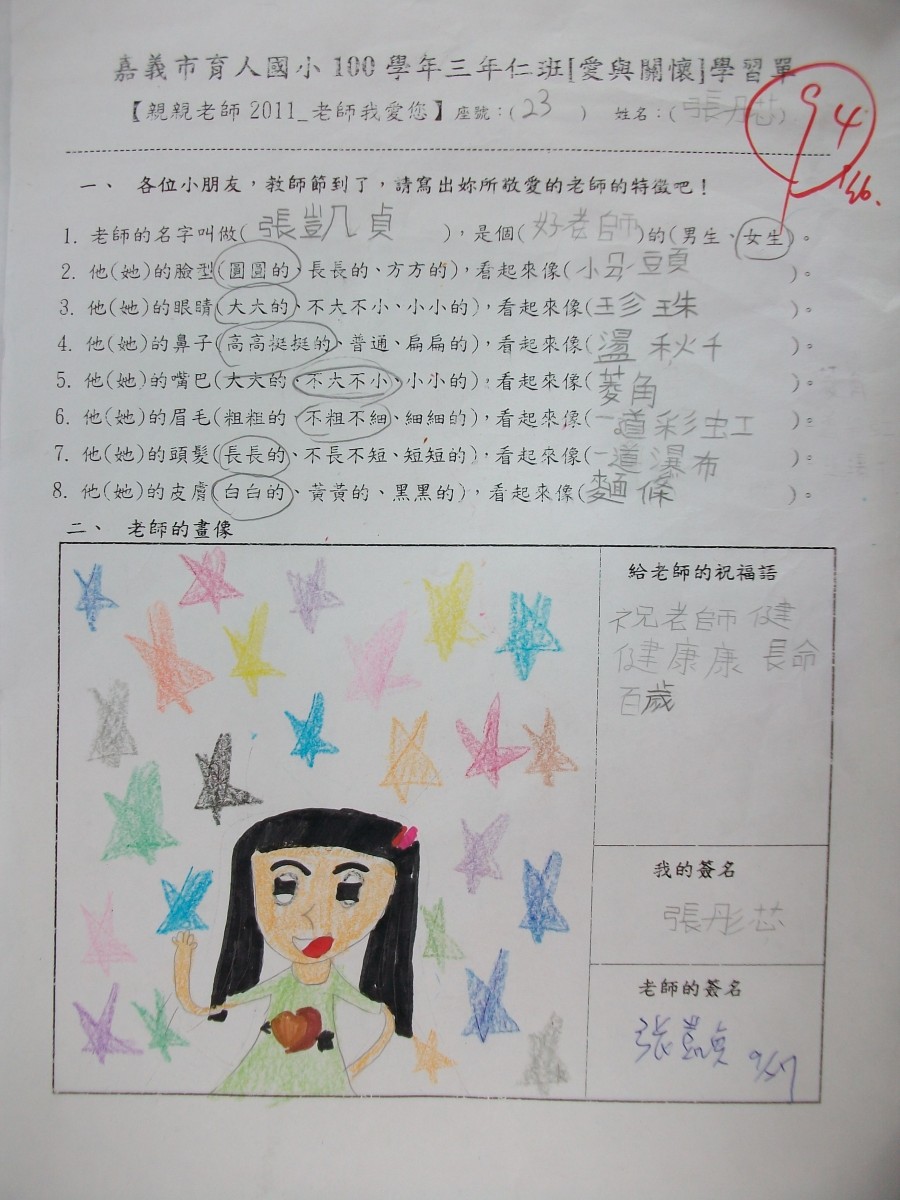 嘉義市育人國小100學年三年仁班[愛與關懷]學習單
【親親老師2011_老師我愛您】座號：(23) 姓名：(張彤芯)
94
9/26.
一、 各位小朋友，教師節到了，請寫出妳所敬愛的老師的特徵吧！
1. 老師的名字叫做(張凱貞)，是個(好老師)的(男生、女生)。
2. 他(她)的臉型(圓圓的、長長的、方方的)，看起來像(小丸頭)。
3. 他(她)的眼睛(大大的、不大不小、小小的)，看起來像(珍珠)。
4. 他(她)的鼻子(高高挺挺的、普通、扁扁的)，看起來像(盪秋千)。
5. 他(她)的嘴巴(大大的、不大不小、小小的)，看起來像(菱角)。
6. 他(她)的眉毛(粗粗的、不粗不細、細細的)，看起來像(一道彩虹)。
7. 他(她)的頭髮(長長的、不長不短、短短的)，看起來像(一道瀑布)。
8. 他(她)的皮膚(白白的、黃黃的、黑黑的)，看起來像(麵條)。
二、 老師的畫像
給老師的祝福語
祝老師健
健康康 長命
百歲
我的簽名
張彤芯
老師的簽名
9/27